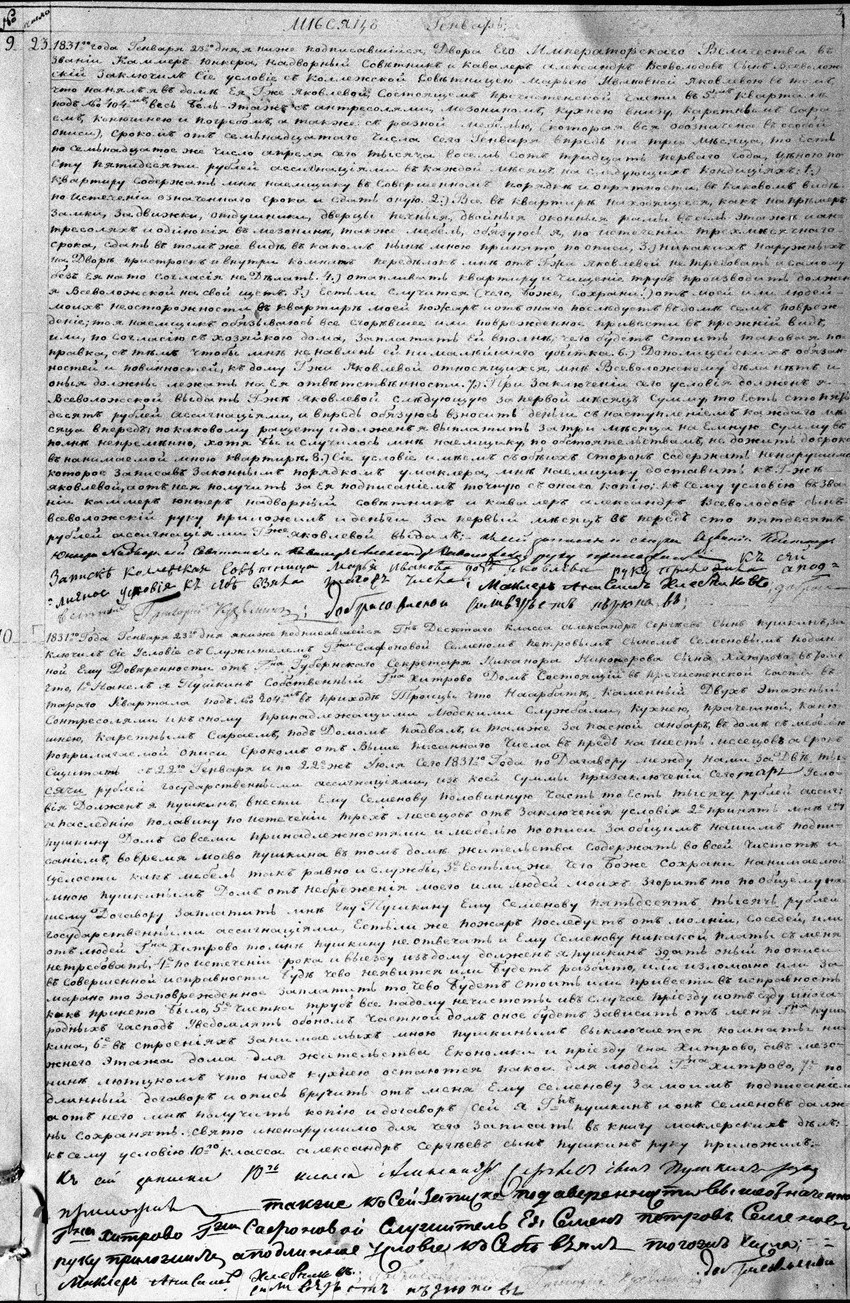 № число МѢСЯЦЪ Генварь;
9. 23. 1831го года Генваря 23го дня я ниже подписавшейся, Двора Его Императорского Величества въ
званіи Каммеръ Юнкера, надворный Совѣтникъ и Кавалеръ Александръ Всеволодовъ Сынъ Всеволож-
ской заключилъ сіе условіе съ Коллежской Совѣтницею Марьею Ивановной Яковлевою въ томъ,
что нанялъ я въ домѣ Ея Гжи Яковлевой, состоящемъ Пречистенской Части въ 5мъ Кварталѣ
подъ № 404мъ весь Бель-Этажъ съ антресолями, Мезониномъ, Кухнею внизу, Каретнымъ Сара-
емъ, Конюшнею и погребомъ, а также съ разной мебелью, (которая вся обозначена въ особой
описи), срокомъ отъ семьнадцатаго числа сего Генваря впредь на три мѣсяца, то есть
по семьнадцатое же число апреля сего тысяча восемь сотъ тридцать перваго года, цѣною по
сту пятидесяти рублей ассигнаціями въ каждой мѣсяцъ на слѣдующихъ кондиціяхъ: 1.)
Квартиру содержать мнѣ наемщику въ совершенномъ порядкѣ и опрятности, въ каковомъ видѣ
по истеченіи означенного срока и сдать оную. 2.) Все въ квартирѣ находящееся, какъ напримѣръ
замки, задвижки, отдушники, дверцы печныя, двойныя оконныя рамы въ бель этажѣ и ан-
тресоляхъ и одинокія въ мезонинѣ, также мебель, обязуюсь я, по истеченіи трехмѣсячнаго
срока, сдать въ томъ же видѣ, въ какомъ нынѣ мною принято, по описи, 3.) никакихъ наружныхъ
на Дворѣ пристроекъ и внутри комнатъ передѣлокъ мнѣ отъ Гжи Яковлевой не требовать и самому
безъ Ея на то согласія не дѣлать. 4.) отапливать квартиру и чищеніе трубъ производить долженъ
я Всеволожской на свой щетъ. 5.) Естьли случится (чего, Боже, сохрани!) отъ моей или людей
моихъ неосторожности въ квартирѣ моей пожаръ и отъ онаго послѣдуетъ въ домѣ чему повреж-
деніе; то я наемщикъ обязываюсь все сгоревшее или поврежденное привести въ прежній видъ,
или, по согласію съ хозяйкою дома, заплатить Ей вполнѣ, чего будетъ стоить таковая по-
правка, съ тѣмъ чтобы мнѣ не навлечь ей ни малѣйшаго убытка. 6.) До полицейскихъ обязан-
ностей и повинностей, къ дому Гжи Яковлевой относящихся мнѣ Всеволожскому дѣла нѣтъ и
оныя должны лежать на Ея отвѣтственности. 7.) При заключеніи сего условія долженъ я
Всеволожской выдать Гжѣ Яковлевой слѣдующую за первой мѣсяцъ сумму то есть сто пять-
десятъ рублей ассигнаціями, и впредь обязуюсь взносить деньги съ наступленіемъ каждаго мѣ-
сяца впередъ; по каковому ращету и долженъ я выплатить за три мѣсяца наемную сумму въ
полнѣ непремѣнно, хотя бы и случилось мнѣ наемщику, по обстоятельствамъ, не дожить до срока
въ нанимаемой мною квартирѣ. 8.) Сіе условіе имѣемъ съ обѣихъ сторонъ содержать ненарушимо
которое записавъ законнымъ порядкомъ у маклера, мнѣ наемщику доставить къ Гжѣ
Яковлевой, а отъ нея получить за Ея подписаніемъ точную съ онаго копію; къ сему условію въ зва-
ніи каммеръ юнкеръ надворный совѣтникъ и кавалеръ александръ Всеволодовъ сынъ
всеволожскій руку приложилъ и деньги за первый мѣсяцъ въ передъ сто пятьдесятъ
рублей ассигнаціями Гжѣ Яковлевой выдалъ;
руку приложилъ къ сей
Запискѣ Колежская совѣтница Марья Иванова дочь Яковлева руку приложила а под-
линное условіе къ себѣ взяла тогожъ числа; Маклеръ
10. 1831го Года Генваря 23го дня я ниже подписавшейся Гнъ Десятаго класса Александръ Сергѣевъ сынъ Пушкинъ, за-
ключилъ Сіе Условіе съ Служителемъ Гжи Сафоновой Семеномъ Петровымъ сыномъ Семеновымъ по дан-
ной Ему Довѣренности отъ Гна Губернскаго Секретаря Никанора Никонорова Сына Хитрово въ томъ
что, 1е Нанелъ я Пушкинъ Собственный Гна Хитрово Домъ Состоящій въ пречистенской части въ-
тараго Квартала подъ № 204мъ въ приходѣ Троицы что на Арбатѣ, каменный Двухъ Этажный
Сонтресолями и къ оному принадлежащими Людскими Службами, Кухнею, прачешной, Коню-
шнею, Каретнымъ Сараемъ, подъ Домомъ Падвалъ, и также запасной анбаръ, въ домѣ съ мебелью
по прилагаемой описи Срокомъ отъ Выше писаннаго Числа въ предь на шесть месецовъ а срокъ
Сщитать съ 22го Генваря и по 22е жъ Июля Сего 1831го Года по Договору между Нами за Двѣ ты-
сячи рублей государственными ассигнаціями, изъ коей Суммы при заключеніи Сего Усло-
вія Долженъ я пушкинъ, внести Ему Семенову Половинную Часть то Есть тысячу рублей ассиг:
а паследнию Половину по истеченіи трехъ месецовъ отъ Заключенія условія 2е принять мнѣ Гну
пушкину Домъ Со всеми принадлежностями и мебелью по описи За общимъ нашимъ подпи-
саніемъ, во время моево пушкина въ томъ домѣ жительства Содержать во всей Чистотѣ и
целости какъ мебель такъ равно и службы, 3е Естьли же Чего Боже Сохрани нанимаемой
мною пушкинымъ Домъ отъ небреженія моего или людей Моихъ Згоритъ то по общему на-
шему Договору Заплатить мнѣ Гну Пушкину Ему Семенову пятьдесятъ тысячь рублей
государственными ассигнаціями, Естьли же пожаръ последуетъ отъ молніи, соседей, или
отъ людей Гна Хитрово то мнѣ пушкину не отвечать и Ему Семенову никакой платы съ меня
не требовать, 4е по истеченіи срока и выезду изъ дому долженъ я пушкинъ здать оный по описи
въ Совершенной исправности буде чево неявится или будетъ разбито, или изломано или за-
марано то за поврежденное Заплатить то Чево будетъ Стоить или привести въ исправность
какъ принето было, 5е Чистка трубъ все падому нечистоты и въ случае приезду и отъезду инога-
родныхъ господъ Уведомлять обономъ Частной домъ оное будетъ Зависить отъ меня Гна пуш-
кина, 6е въ строеніяхъ занимаемыхъ мною пушкинымъ выключается комнаты ни-
жнего Этажа дома для жительства Економки и приезду Гна Хитрово, и въ мезо-
нинѣ людскомъ что надъ кухнею остаются покои для людей Гна Хитрово, 7е по
длинный договоръ и опись вручить отъ меня Ему Семенову за моимъ подписаніемъ
а отъ него мнѣ получить копію и договоръ сей я Гнъ пушкинъ и онъ Семеновъ долж-
ны сохранять свято и ненарушимо для чего Записать въ книгу маклерскихъ дѣлъ;
къ сему условію 10го класса александръ Сергѣевъ сынъ пушкинъ руку приложилъ
Къ сей записки 10го класса Александръ Сергѣевъ сынъ Пушкинъ руку
приложилъ также къ Сей Запискѣ по доверенности Вышеозначенного
Гна Хитрово Гжи Сафоновой Служитель Ее Семенъ Петровъ Семеновъ
руку приложилъ, а подлинное Условіе къ Себѣ взялъ тогожъ числа;
Маклеръ